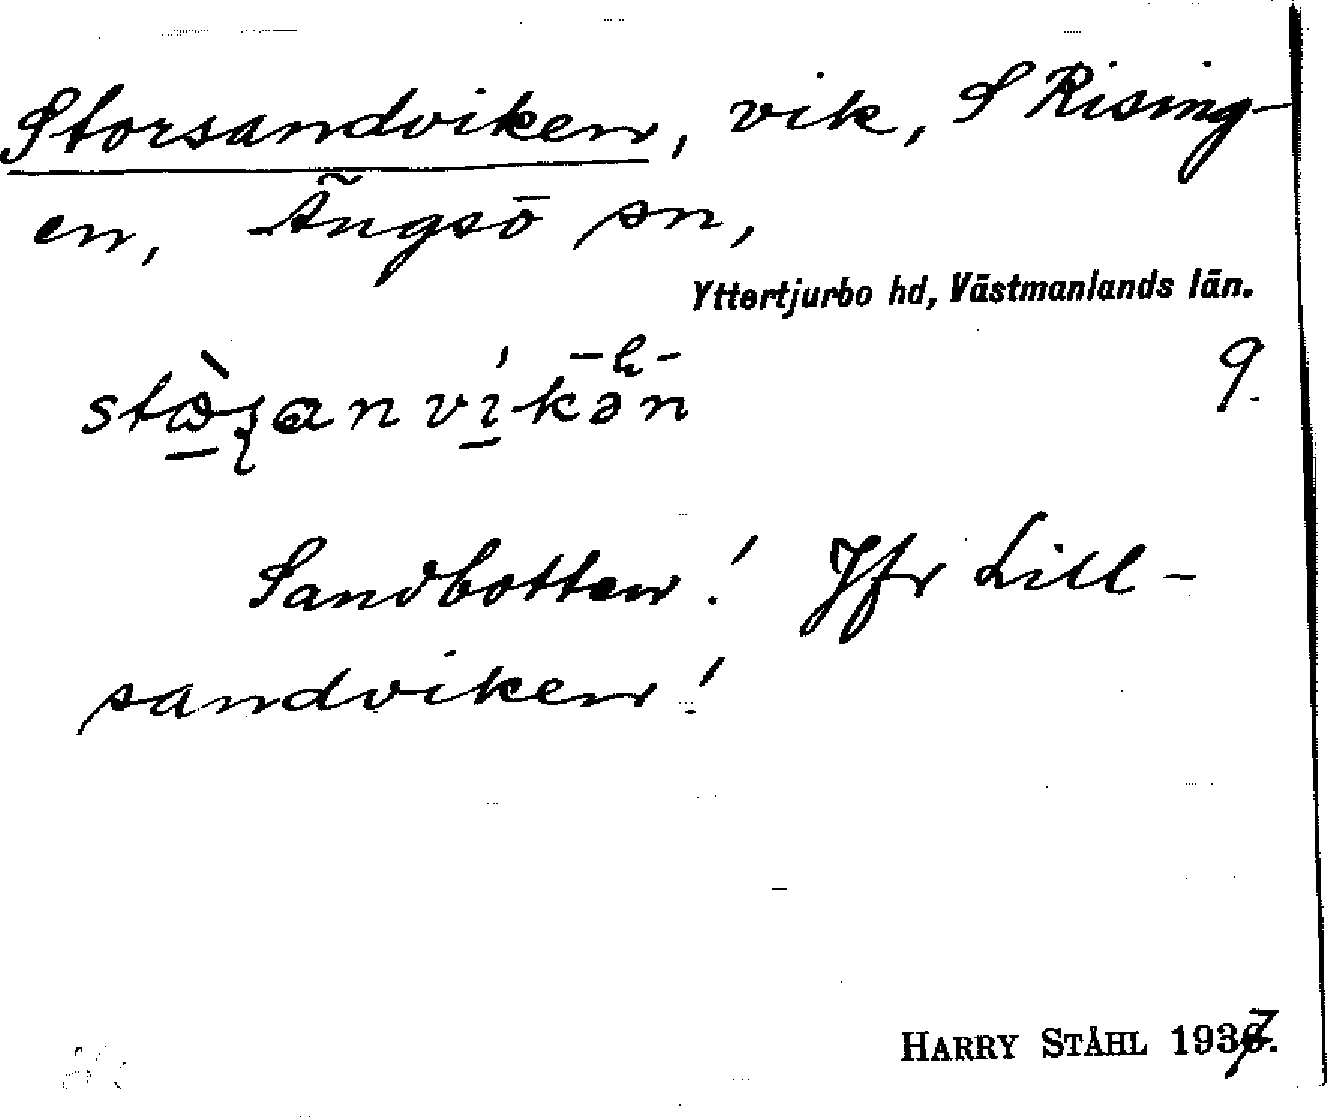 Storsandviken, vik, S Rising-
en, Ängsö sn,
Yttertjurbo hd, Västmanlands län.
-h-
9.
Sandbotten! Jfr Lill-
sandviken!
HARRY STÅHL 1937.